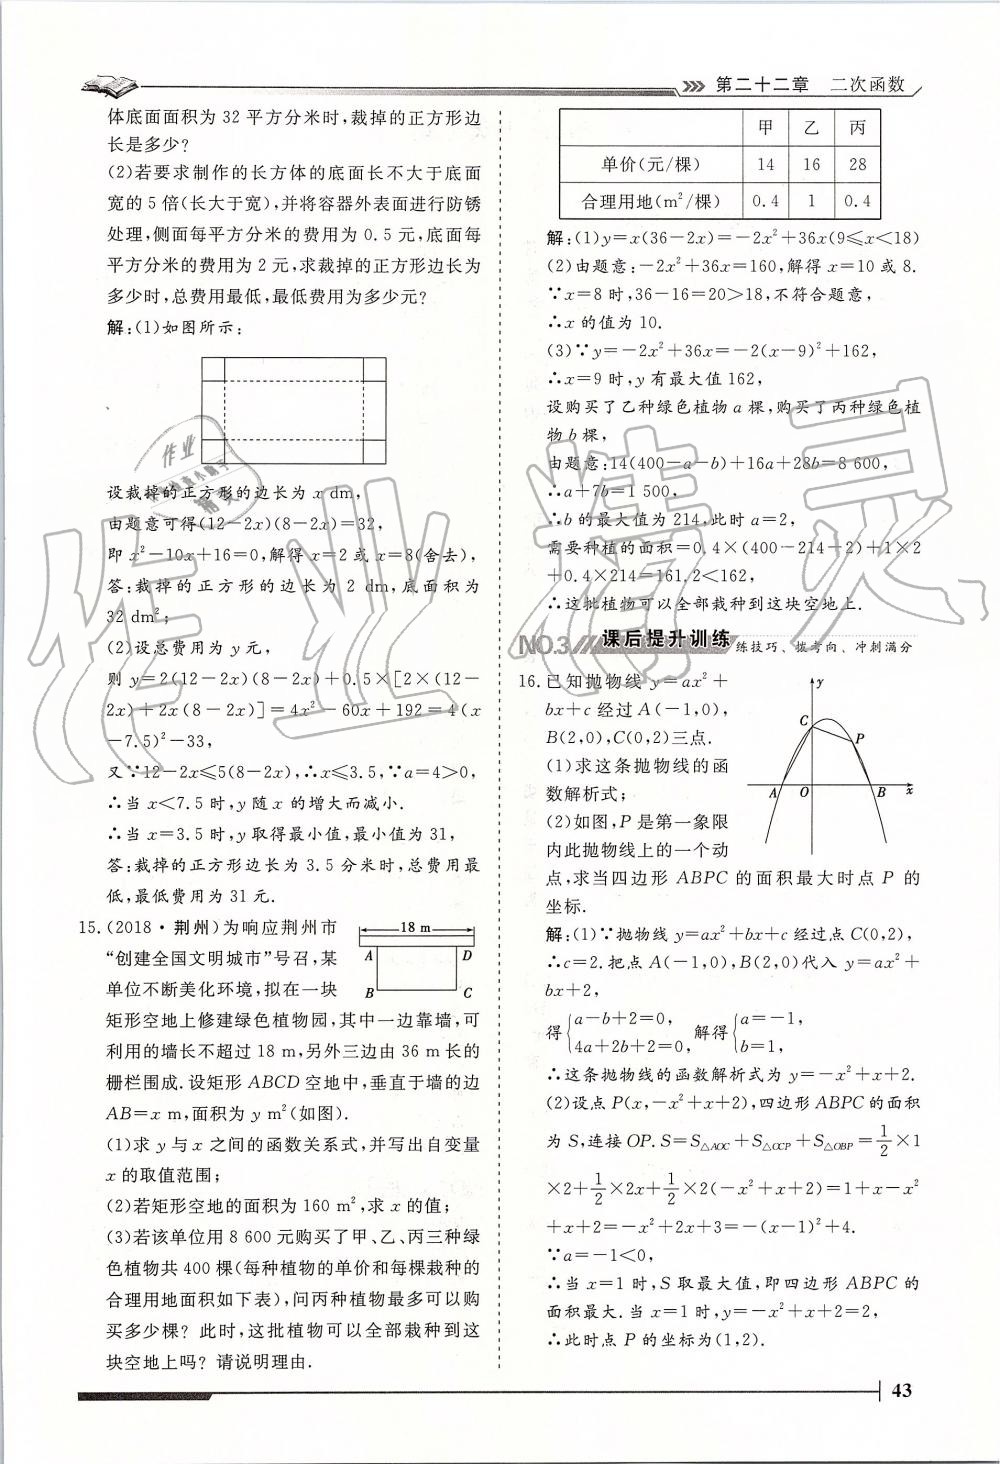 第二十二章 二次函数
体底面面积为 32 平方分米时,裁掉的正方形边
长是多少?
(2)若要求制作的长方体的底面长不大于底面
宽的 5 倍(长大于宽),并将容器外表面进行防锈
处理,侧面每平方分米的费用为 0.5 元,底面每
平方分米的费用为 2 元,求裁掉的正方形边长为
多少时,总费用最低,最低费用为多少元?
解:(1)如图所示:
设裁掉的正方形的边长为 x dm,
由题意可得(12-2x)(8-2x)=32,
即 x²-10x+16=0,解得 x=2 或 x=8(舍去),
答:裁掉的正方形的边长为 2 dm,底面积为
32 dm²;
(2)设总费用为 y 元,
则 y=2(12-2x)(8-2x)+0.5×[2×(12-
2x)+2x(8-2x)]=4x²-60x+192=4(x
-7.5)²-33,
又∵12-2x≤5(8-2x),∴x≤3.5,∵a=4>0,
∴当 x<7.5 时,y 随 x 的增大而减小.
∴当 x=3.5 时,y 取得最小值,最小值为 31,
答:裁掉的正方形边长为 3.5 分米时,总费用最
低,最低费用为 31 元.
15.(2018·荆州)为响应荆州市
“创建全国文明城市”号召,某
单位不断美化环境,拟在一块
矩形空地上修建绿色植物园,其中一边靠墙,可
利用的墙长不超过 18 m,另外三边由 36 m 长的
栅栏围成.设矩形 ABCD 空地中,垂直于墙的边
AB=x m,面积为 y m²(如图).
(1)求 y 与 x 之间的函数关系式,并写出自变量
x 的取值范围;
(2)若矩形空地的面积为 160 m²,求 x 的值;
(3)若该单位用 8 600 元购买了甲、乙、丙三种绿
色植物共 400 棵(每种植物的单价和每棵栽种的
合理用地面积如下表),问丙种植物最多可以购
买多少棵? 此时,这批植物可以全部栽种到这
块空地上吗? 请说明理由.
18 m
A D
B C
甲 乙 丙
单价(元/棵) 14 16 28
合理用地(m²/棵) 0.4 1 0.4
解:(1)y=x(36-2x)=-2x²+36x(9≤x<18)
(2)由题意:-2x²+36x=160,解得 x=10 或 8.
∵x=8 时,36-16=20>18,不符合题意,
∴x 的值为 10.
(3)∵y=-2x²+36x=-2(x-9)²+162,
∴x=9 时,y 有最大值 162,
设购买了乙种绿色植物 a 棵,购买了丙种绿色植
物 b 棵,
由题意:14(400-a-b)+16a+28b=8 600,
∴a+7b=1 500,
∴b 的最大值为 214,此时 a=2,
需要种植的面积=0.4×(400-214-2)+1×2
+0.4×214=161.2<162,
∴这批植物可以全部栽种到这块空地上.
NO.3 课后提升训练 练技巧、拨考向、冲刺满分
16.已知抛物线 y=ax²+
bx+c 经过 A(-1,0),
B(2,0),C(0,2)三点.
(1)求这条抛物线的函
数解析式;
(2)如图,P 是第一象限
内此抛物线上的一个动
点,求当四边形 ABPC 的面积最大时点 P 的
坐标.
y
C
P
A O B x
解:(1)∵抛物线 y=ax²+bx+c 经过点 C(0,2),
∴c=2.把点 A(-1,0),B(2,0)代入 y=ax²+
bx+2,
得{a-b+2=0, 4a+2b+2=0, 解得{a=-1, b=1,
∴这条抛物线的函数解析式为 y=-x²+x+2.
(2)设点 P(x,-x²+x+2),四边形 ABPC 的面积
为 S,连接 OP.S=S△AOC+S△OCP+S△OBP=1/2×1
×2+1/2×2x+1/2×2(-x²+x+2)=1+x-x²
+x+2=-x²+2x+3=-(x-1)²+4.
∵a=-1<0,
∴当 x=1 时,S 取最大值,即四边形 ABPC 的
面积最大.当 x=1 时,y=-x²+x+2=2,
∴此时点 P 的坐标为(1,2).
43
作业精灵